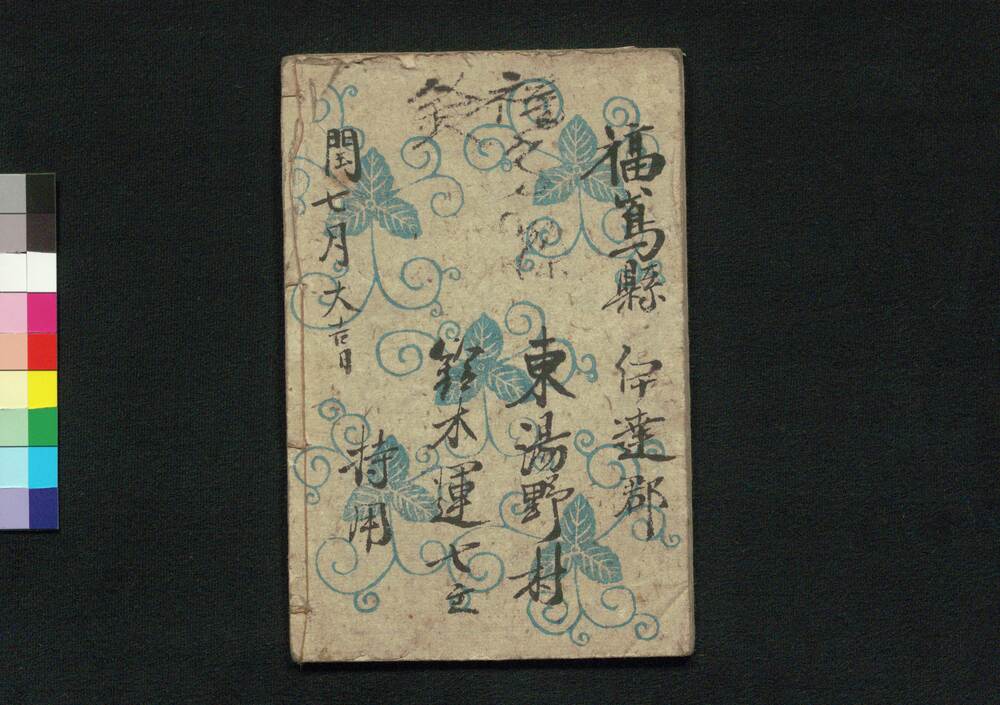 福嶌縣 伊達郡
東湯野村
鈴木運七
持用
閏七月大吉日